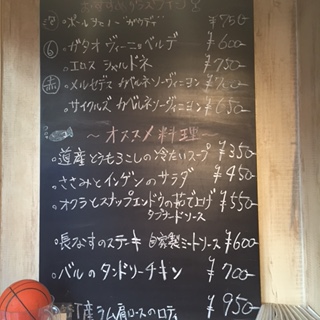 ポールジロー ¥750
白 ・ガタオ ヴィーニョベルデ ¥600
・エロス シャルドネ ¥750
赤 ・メルセデス カベルネソーヴィニヨン
・サイクルズ カベルネソーヴィニヨン ¥650
〜オススメ料理〜
・道産とうもろこしの冷たいスープ ¥350
・ささみとインゲンのサラダ ¥450
・オクラとスナップエンドウの茹で上げ ¥550
タプナードソース
・長なすのステーキ 自家製ミートソース ¥600
・バルのタンドリーチキン ¥700
産ラム肩ロースのロティ ¥950